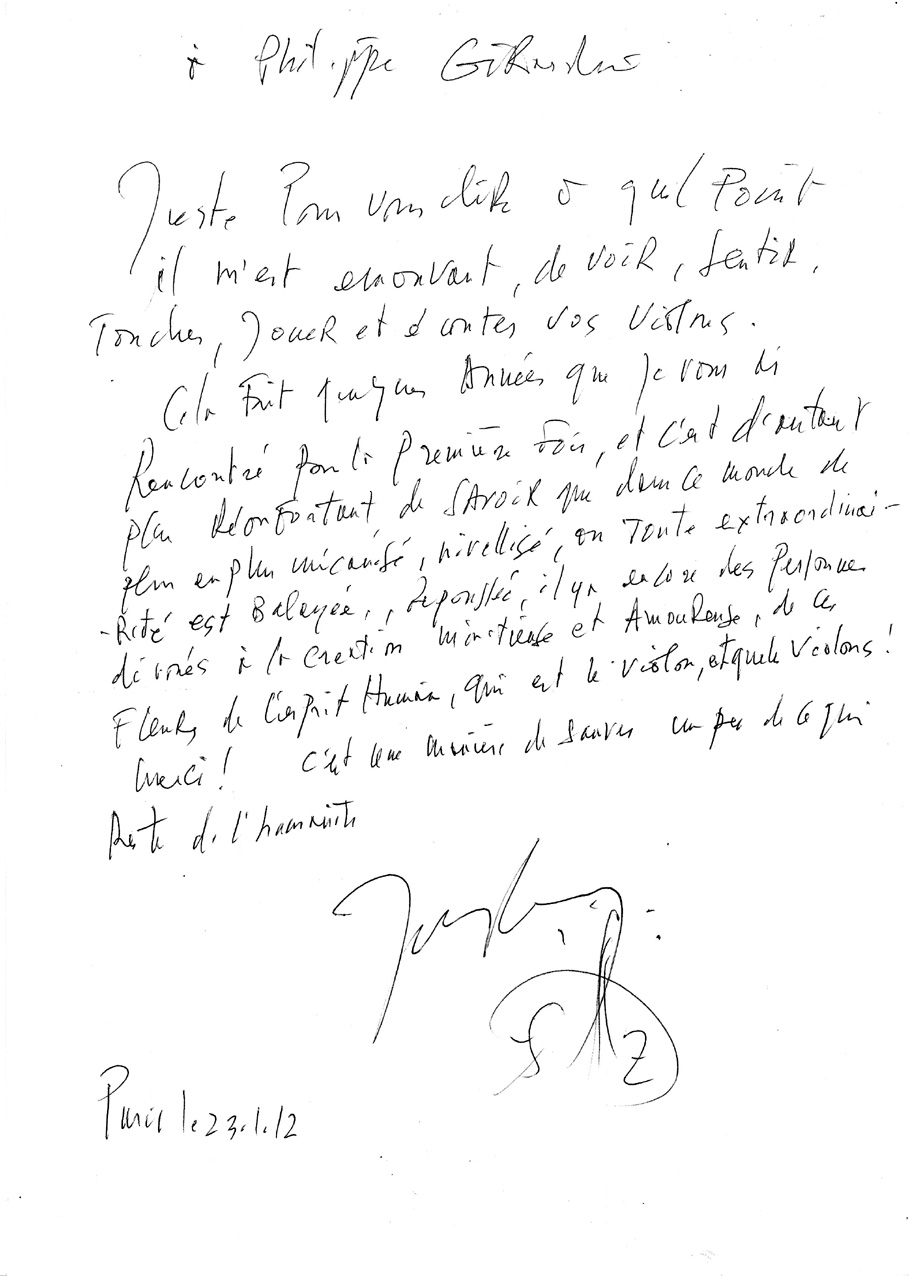 à Philippe Girardin
Juste Pour vous diRe à quel Point
il m'est emouvant, de voiR, SentiR,
Toucher, JoueR et écouter vos violons.
Cela Fait quelques Années que Je vous ai
Rencontré pour la PRemière Fois, et c'est d'autant
plus RéconFortant de SAvoiR que dans ce monde de
plus en plus mécanisé, nivellisé, où Toute extraordinai-
-Rité est Balayée, repoussée, il y a encore des Personnes
dévoués à la creation minutieuse et AmouReuse, de ces
FleuRs de l'esprit Humain, qui est le violon, et quels violons!
Merci! C'est une manière de sauver un peu de ce qui
Reste de l'humanité
Paris le 23.1.12